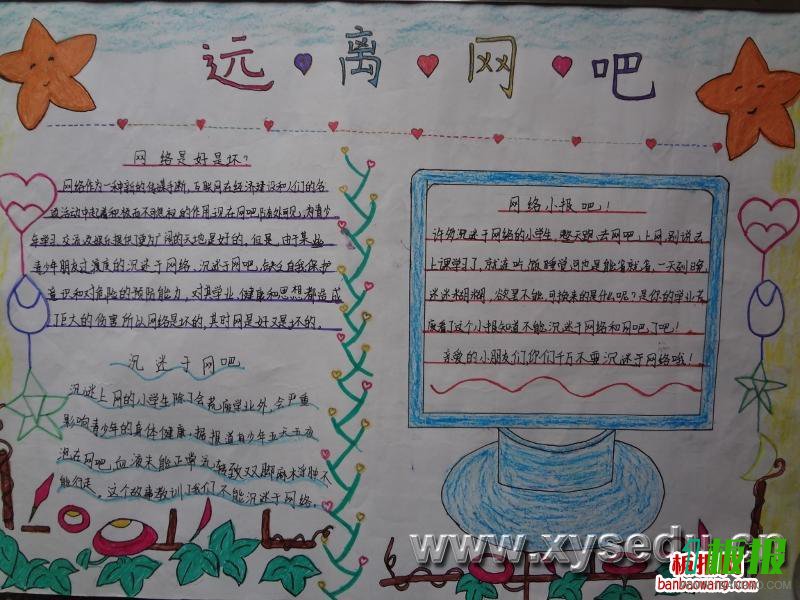 远离网吧
网络是好是坏?
网络作为一种新的传媒手断,互联网在经济建设和人们的各
政活动中起着积极而不可忽视的作用现在网吧随处可见,为青少
年学习、交流及娱乐提供了更为广阔的天地是好的。但是,由于某些
青少年朋友过度的沉迷于网络、沉迷于网吧,缺乏自我保护
意识和对危险的预防能力,对其学业、健康和思想都造成
了巨大的伤害所以网络是坏的,其时网是好又是坏的。
沉迷于网吧
沉迷上网的小学生除了会荒废学业外,会严重
影响青少年的身体健康,据报道有少年五天五夜
泡在网吧,血液未能正常流转致双脚麻木浮肿不
能行走。这个故事教训了我们不能沉迷于网络。
网络小报吧!
许多沉迷于网络的小学生,整天跑去网吧上网,别说去
上课学习了,就连吃饭睡觉可也是能省就省,一天到晚
迷迷糊糊,欲罢不能,可换来的是什么呢?是你的学业荒
废看了这个小报知道不能沉迷于网络和网吧了吧!
亲爱的小朋友们你们千万不要沉迷于网络哦!
www.xysedu.cn
板报
banbaowang.com